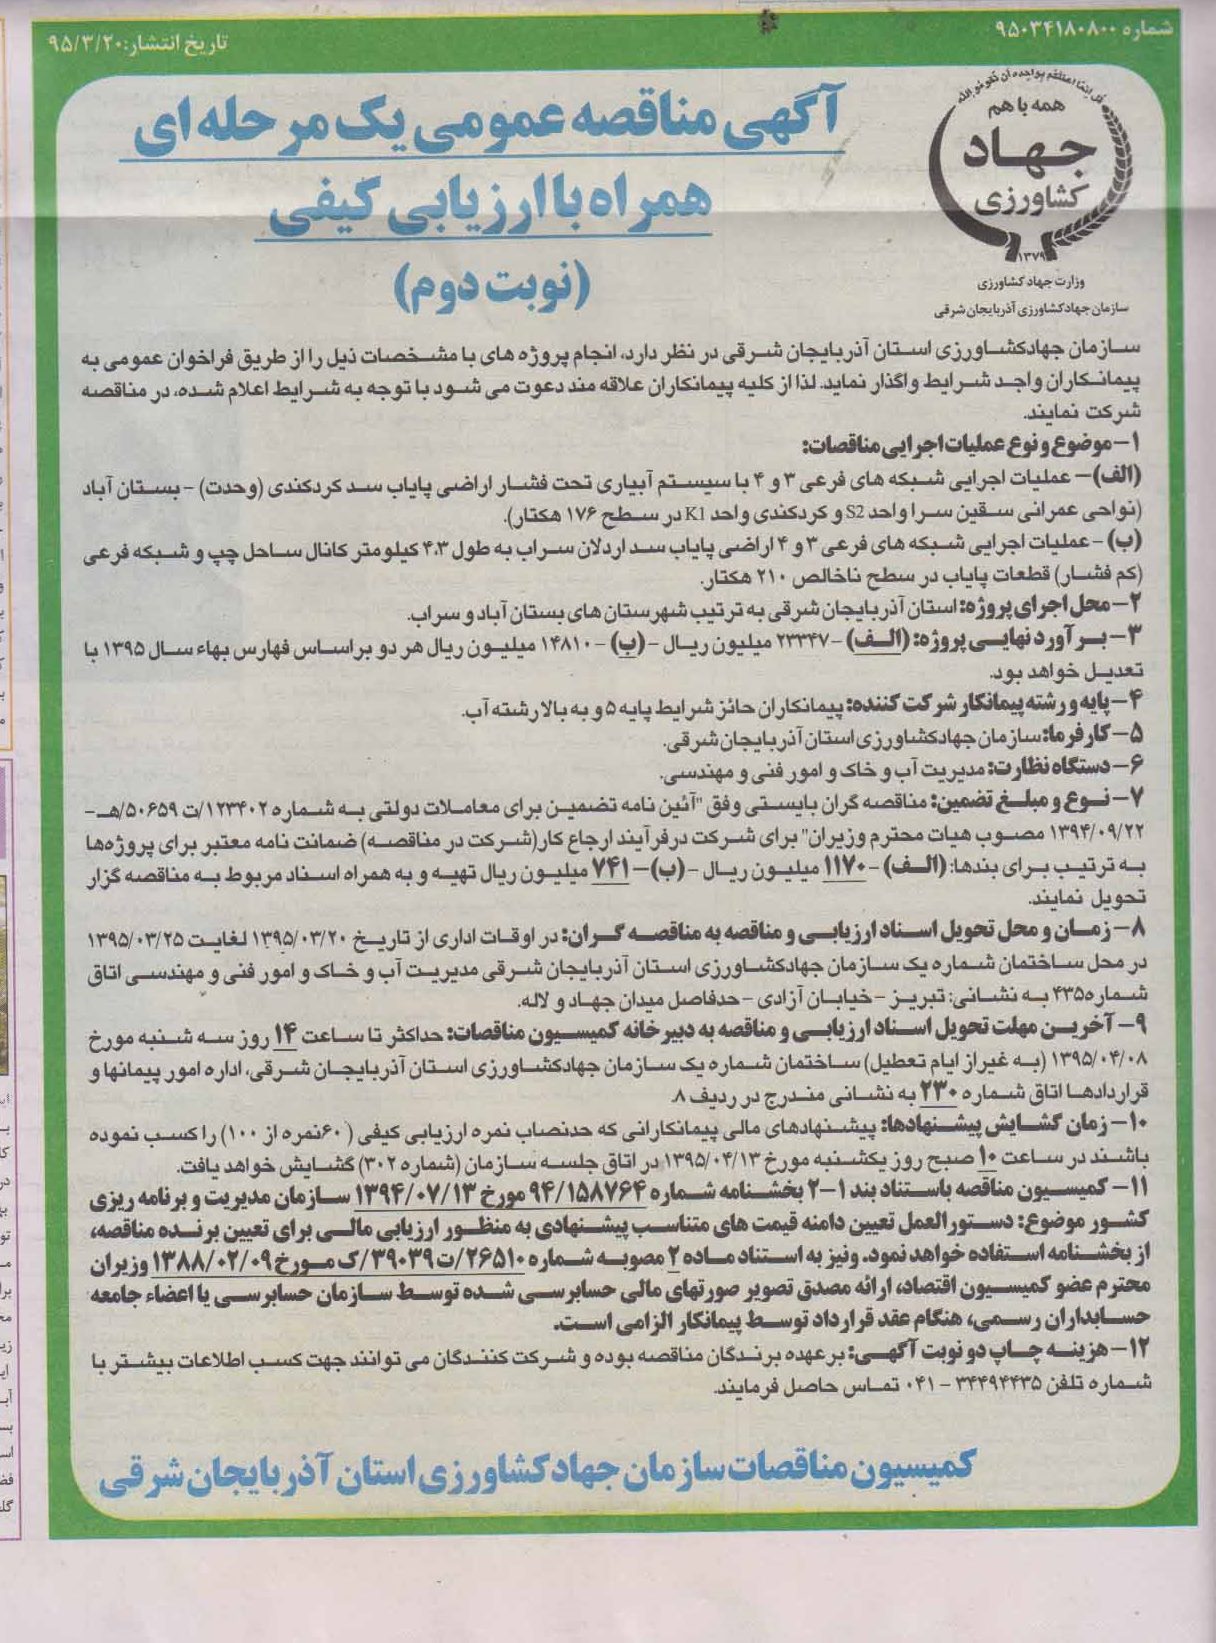 شماره ۹۵۰۳۴۱۸۰۸۰۰
تاریخ انتشار:۹۵/۳/۲۰
همه با هم
جهاد
کشاورزی
۱۳۷۹
وزارت جهاد کشاورزی
سازمان جهادکشاورزی آذربایجان شرقی
آگهی مناقصه عمومی یک مرحله ای
همراه با ارزیابی کیفی
(نوبت دوم)
سازمان جهادکشاورزی استان آذربایجان شرقی در نظر دارد، انجام پروژه های با مشخصات ذیل را از طریق فراخوان عمومی به
پیمانکاران واجد شرایط واگذار نماید. لذا از کلیه پیمانکاران علاقه مند دعوت می شود با توجه به شرایط اعلام شده، در مناقصه
شرکت نمایند.
۱- موضوع و نوع عملیات اجرایی مناقصات:
(الف)- عملیات اجرایی شبکه های فرعی ۳ و ۴ با سیستم آبیاری تحت فشار اراضی پایاب سد کردکندی (وحدت) - بستان آباد
(نواحی عمرانی سقین سرا واحد S2 و کردکندی واحد K1 در سطح ۱۷۶ هکتار).
(ب)- عملیات اجرایی شبکه های فرعی ۳ و ۴ اراضی پایاب سد اردلان سراب به طول ۴.۳ کیلومتر کانال ساحل چپ و شبکه فرعی
(کم فشار) قطعات پایاب در سطح ناخالص ۲۱۰ هکتار.
۲- محل اجرای پروژه: استان آذربایجان شرقی به ترتیب شهرستان های بستان آباد و سراب.
۳- برآورد نهایی پروژه: (الف)- ۲۳۳۴۷ میلیون ریال - (ب)- ۱۴۸۱۰ میلیون ریال هر دو براساس فهارس بهاء سال ۱۳۹۵ با
تعدیل خواهد بود.
۴- پایه و رشته پیمانکار شرکت کننده: پیمانکاران حائز شرایط پایه ۵ و به بالا رشته آب.
۵- کارفرما: سازمان جهادکشاورزی استان آذربایجان شرقی.
۶- دستگاه نظارت: مدیریت آب و خاک و امور فنی و مهندسی.
۷- نوع و مبلغ تضمین: مناقصه گران بایستی وفق "آئین نامه تضمین برای معاملات دولتی به شماره ۱۲۳۴۰۲/ت ۵۰۶۵۹/هـ-
۱۳۹۴/۰۹/۲۲ مصوب هیات محترم وزیران" برای شرکت درفرآیند ارجاع کار(شرکت در مناقصه) ضمانت نامه معتبر برای پروژه‌ها
به ترتیب برای بندها: (الف)- ۱۱۷۰ میلیون ریال - (ب)- ۷۴۱ میلیون ریال تهیه و به همراه اسناد مربوط به مناقصه گزار
تحویل نمایند.
۸- زمان و محل تحویل اسناد ارزیابی و مناقصه به مناقصه گران: در اوقات اداری از تاریخ ۱۳۹۵/۰۳/۲۰ لغایت ۱۳۹۵/۰۳/۲۵
در محل ساختمان شماره یک سازمان جهادکشاورزی استان آذربایجان شرقی مدیریت آب و خاک و امور فنی و مهندسی اتاق
شماره۴۳۵ به نشانی: تبریز - خیابان آزادی - حدفاصل میدان جهاد و لاله.
۹- آخرین مهلت تحویل اسناد ارزیابی و مناقصه به دبیرخانه کمیسیون مناقصات: حداکثر تا ساعت ۱۴ روز سه شنبه مورخ
۱۳۹۵/۰۴/۰۸ (به غیر از ایام تعطیل) ساختمان شماره یک سازمان جهادکشاورزی استان آذربایجان شرقی، اداره امور پیمانها و
قراردادها اتاق شماره ۲۳۰ به نشانی مندرج در ردیف ۸.
۱۰- زمان گشایش پیشنهادها: پیشنهادهای مالی پیمانکارانی که حدنصاب نمره ارزیابی کیفی (۶۰نمره از ۱۰۰) را کسب نموده
باشند در ساعت ۱۰ صبح روز یکشنبه مورخ ۱۳۹۵/۰۴/۱۳ در اتاق جلسه سازمان (شماره ۳۰۲) گشایش خواهد یافت.
۱۱- کمیسیون مناقصه باستناد بند ۱-۲ بخشنامه شماره ۹۴/۱۵۸۷۶۴ مورخ ۱۳۹۴/۰۷/۱۳ سازمان مدیریت و برنامه ریزی
کشور موضوع: دستورالعمل تعیین دامنه قیمت های متناسب پیشنهادی به منظور ارزیابی مالی برای تعیین برنده مناقصه،
از بخشنامه استفاده خواهد نمود. ونیز به استناد ماده ۲ مصوبه شماره ۲۶۵۱۰/ت۳۹۰۳۹/ک مورخ ۱۳۸۸/۰۲/۰۹ وزیران
محترم عضو کمیسیون اقتصاد، ارائه مصدق تصویر صورتهای مالی حسابرسی شده توسط سازمان حسابرسی یا اعضاء جامعه
حسابداران رسمی، هنگام عقد قرارداد توسط پیمانکار الزامی است.
۱۲- هزینه چاپ دو نوبت آگهی: برعهده برندگان مناقصه بوده و شرکت کنندگان می توانند جهت کسب اطلاعات بیشتر با
شماره تلفن ۳۴۴۹۴۴۳۵ - ۰۴۱ تماس حاصل فرمایند.
کمیسیون مناقصات سازمان جهادکشاورزی استان آذربایجان شرقی